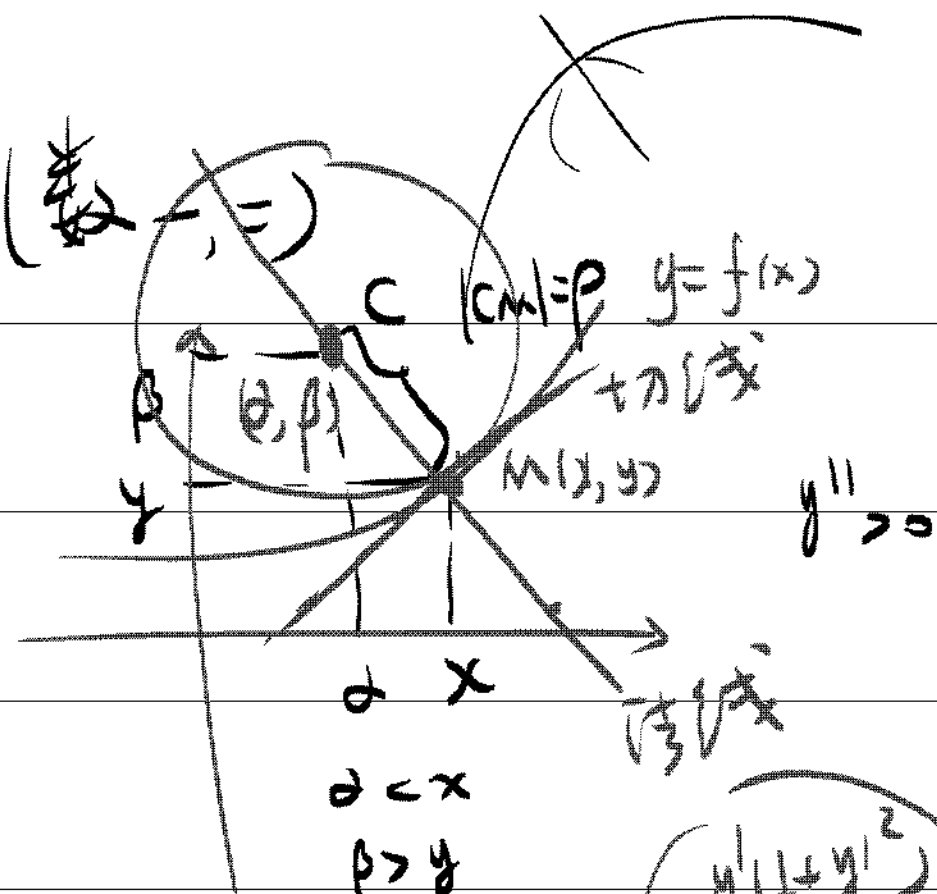 (数一,二)
C |CM|=ρ y=f(x)
切线
β (α,β)
y M(x,y)
y''>0
α x
法线
α<x
β>y
y'(1+y'²)